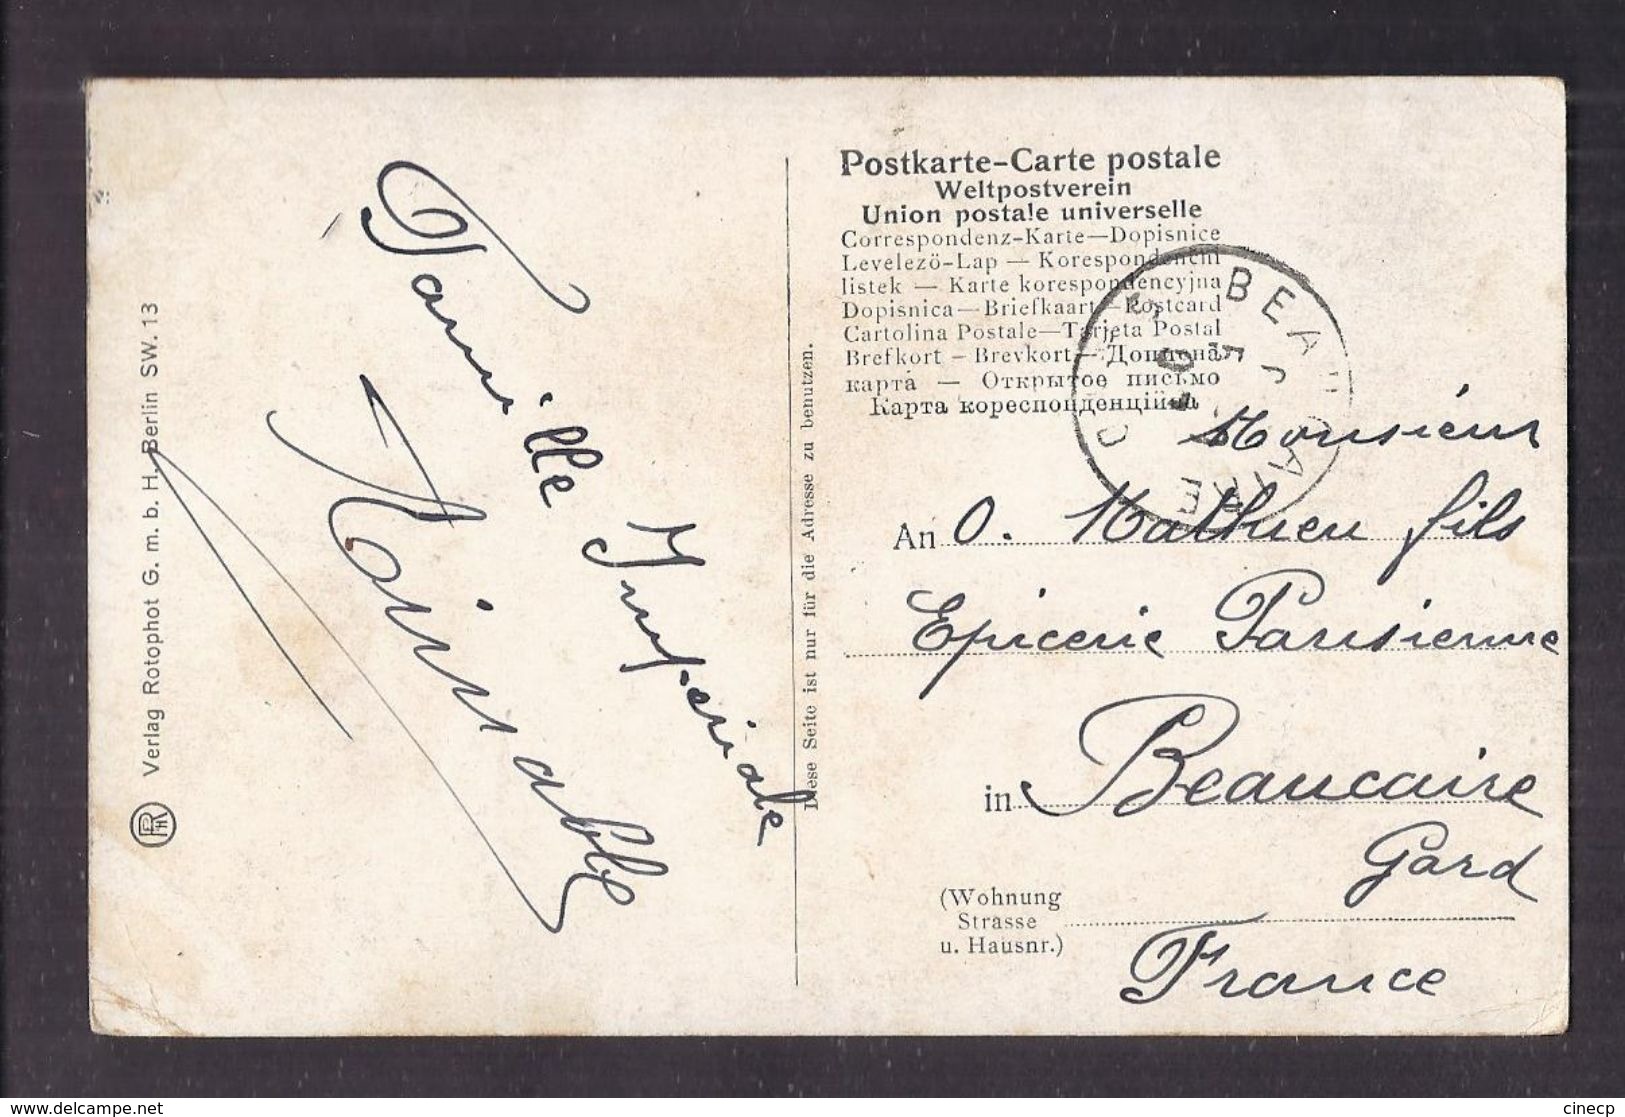 Verlag Rotophot G. m. b. H. Berlin SW. 13
Famille Impériale
Diese Seite ist nur für die Adresse zu benutzen.
Postkarte-Carte postale
Weltpostverein
Union postale universelle
Correspondenz-Karte—Dopisnice
Levelezö-Lap — Korespondenční
listek — Karte korespondencyjna
Dopisnica—Briefkaart—Postcard
Cartolina Postale—Tarjeta Postal
Brefkort – Brevkort—
карта — Открытое письмо
Карта кореспонденційна
BEAUCAIRE
Monsieur
An O. Mathieu fils
Epicerie Parisienne
in Beaucaire
Gard
(Wohnung
Strasse
u. Hausnr.)
France
www.delcampe.net
cinecp